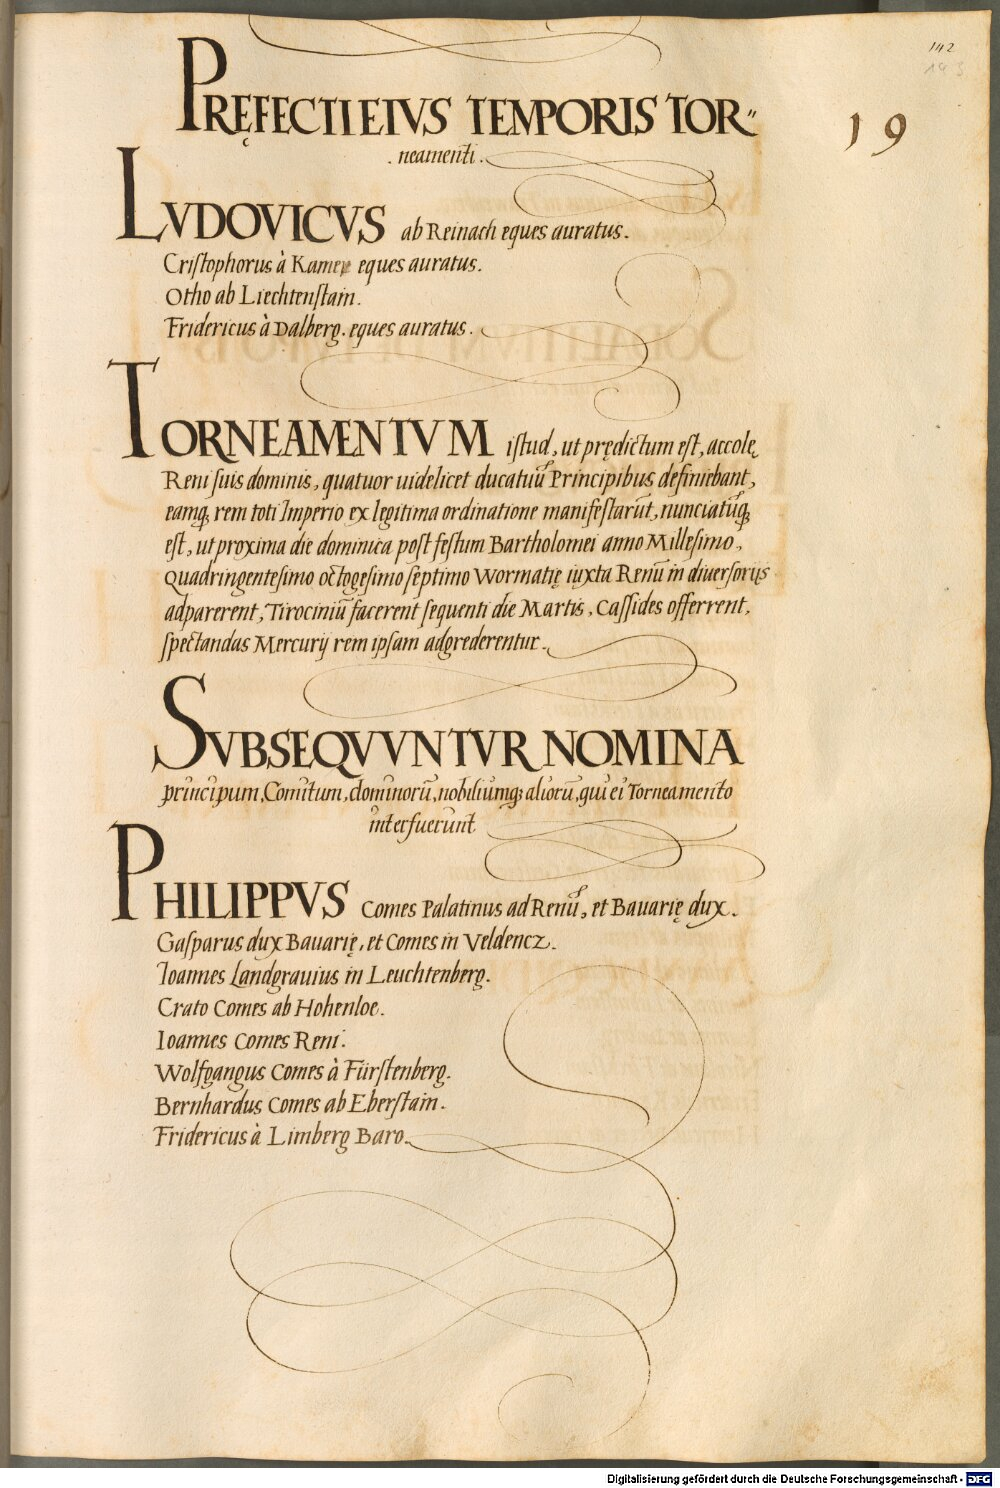 142
143
19
PRĘFECTI EIVS TEMPORIS TOR„
. neamenti .
LVDOVICVS ab Reinach eques auratus.
Cristophorus à Kamer eques auratus.
Otho ab Liechtenstain.
Fridericus à Dalberg. eques auratus.
TORNEAMENTVM istud, ut prędictum est, accolę
Reni suis dominis, quatuor uidelicet ducatuū Principibus definiebant,
eamq; rem toti Imperio ex legitima ordinatione manifestarūt, nunciatūq;
est, ut proxima die dominica post festum Bartholomei anno Millesimo,
Quadringentesimo octogesimo septimo Wormatię iuxta Renū in diuersorijs
adparerent, Tirociniū facerent sequenti die Martis, Cassides offerrent,
spectandas Mercurij rem ipsam adgrederentur.
SVBSEQVVNTVR NOMINA
principum, Comitum, dominorū, nobiliumq; aliorū, qui ei Torneamento
interfuerunt
PHILIPPVS Comes Palatinus ad Renū, et Bauarię dux.
Gasparus dux Bauarię, et Comes in Veldencz.
Ioannes Landgrauius in Leuchtenberg.
Crato Comes ab Hohenloe.
Ioannes Comes Reni.
Wolfgangus Comes à Fürstenberg.
Bernhardus Comes ab Eberstain.
Fridericus à Limberg Baro.
Digitalisierung gefördert durch die Deutsche Forschungsgemeinschaft - DFG